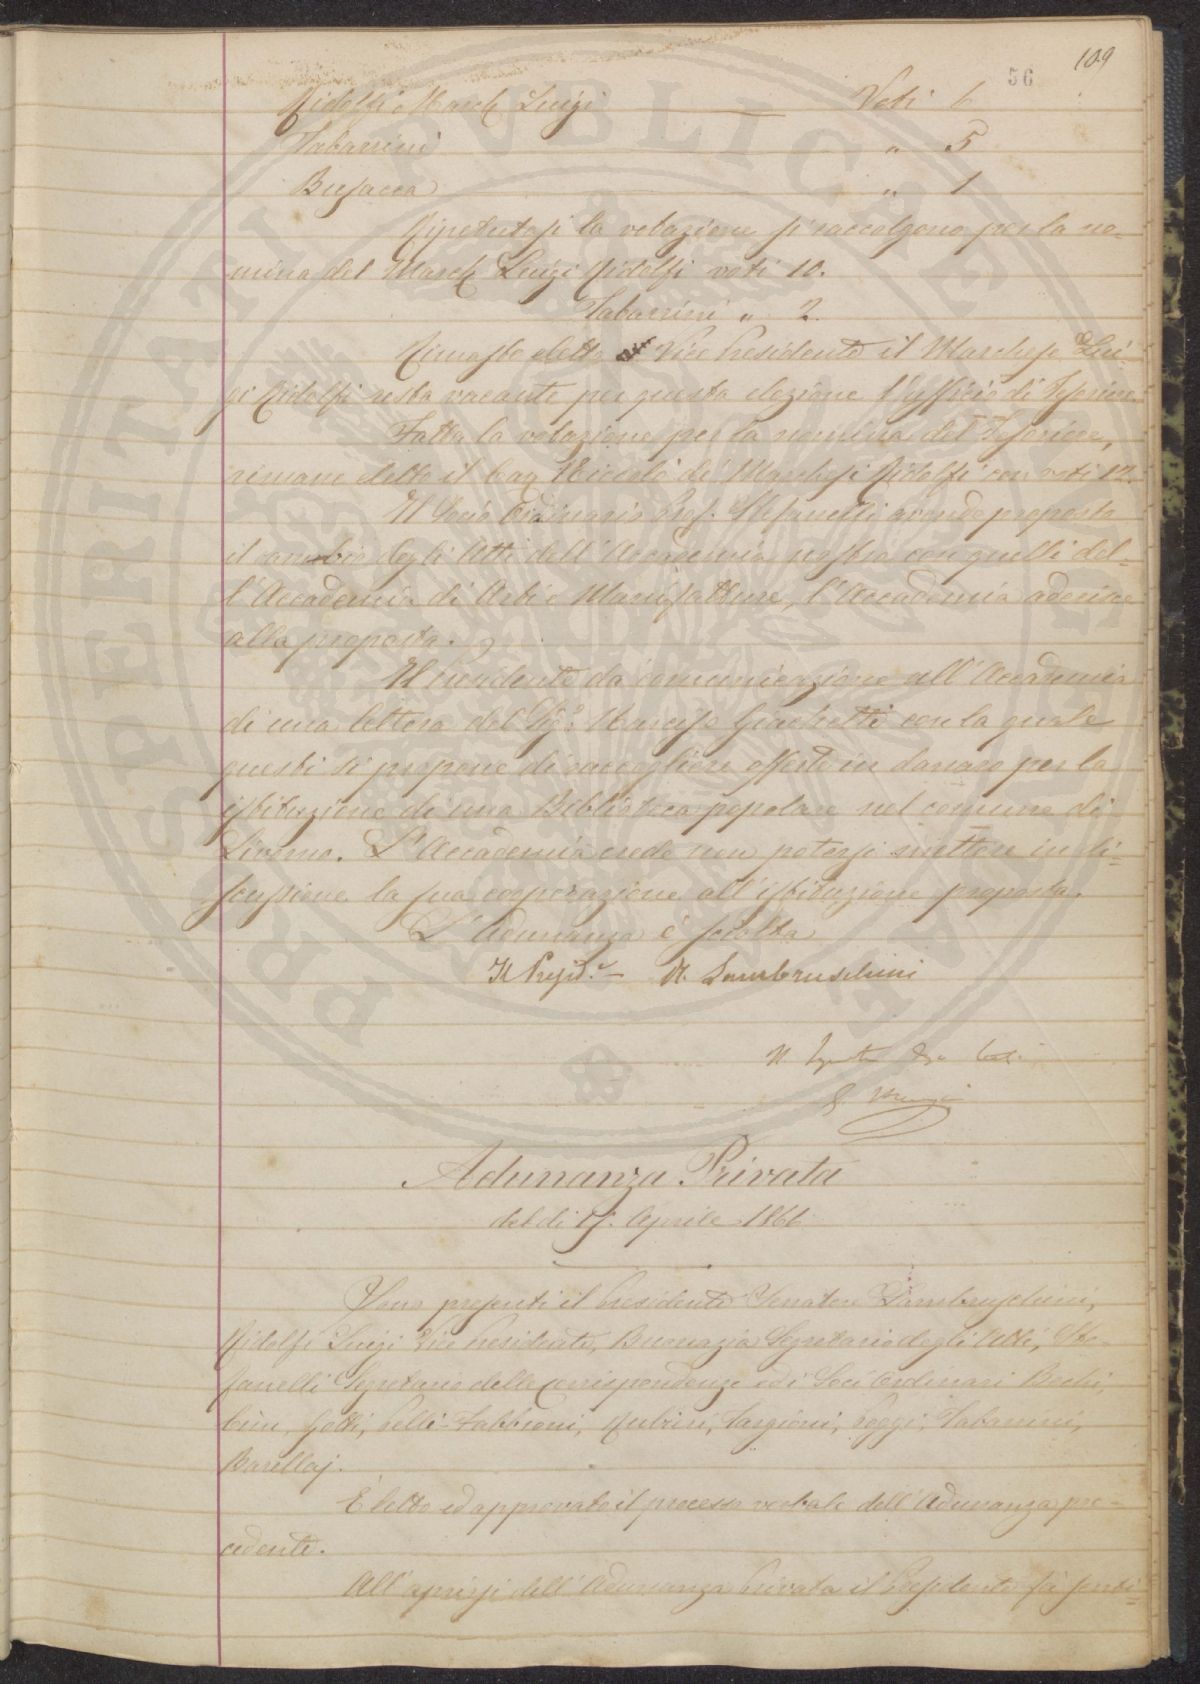 109
56
Ridolfi March Luigi Voti 6
Tabarrini " 5
Busacca " 1
Ripetutasi la votazione si raccolgono per la no-
mina del March Luigi Ridolfi voti 10.
Tabarrini " 2.
Rimasto eletto Vice Presidente il Marchese Lui-
gi Ridolfi resta vacante per questa elezione l'ufficio di Tesoriere
Fatta la votazione per la nomina del Tesoriere,
rimane eletto il Cav Niccolò de' Marchesi Ridolfi con voti 12.
Il Socio Ordinario Prof. Stefanelli avendo proposto
il cambio degli Atti dell'Accademia nostra con quelli del-
l'Accademia di Arti e Manifatture, l'Accademia aderisce
alla proposta.
Il Presidente dà comunicazione all'Accademia
di una lettera del Sig.r Narciso Giachetti con la quale
questi si propone di raccogliere offerte in danaro per la
istituzione di una Biblioteca popolare nel comune di
Livorno. L'Accademia crede non potersi mettere in di-
scussione la sua cooperazione all'istituzione proposta.
L'Adunanza è sciolta
Il Presid.e R. Lambruschini
Il Segretario
Adunanza Privata
del di 17. Aprile 1866
Sono presenti il Presidente Senatore Lambruschini,
Ridolfi Luigi Vice Presidente, Buonazia Segretario degli Atti, Ste-
fanelli Segretario delle corrispondenze ed i Soci Ordinari Bechi,
Gotti, Pelli-Fabbroni, Rubieri, Targioni, Poggi, Tabarrini,
Barellaj.
È letto ed approvato il processo verbale dell'Adunanza pre-
cedente.
All'aprirsi dell'Adunanza Privata il Presidente fa senti-